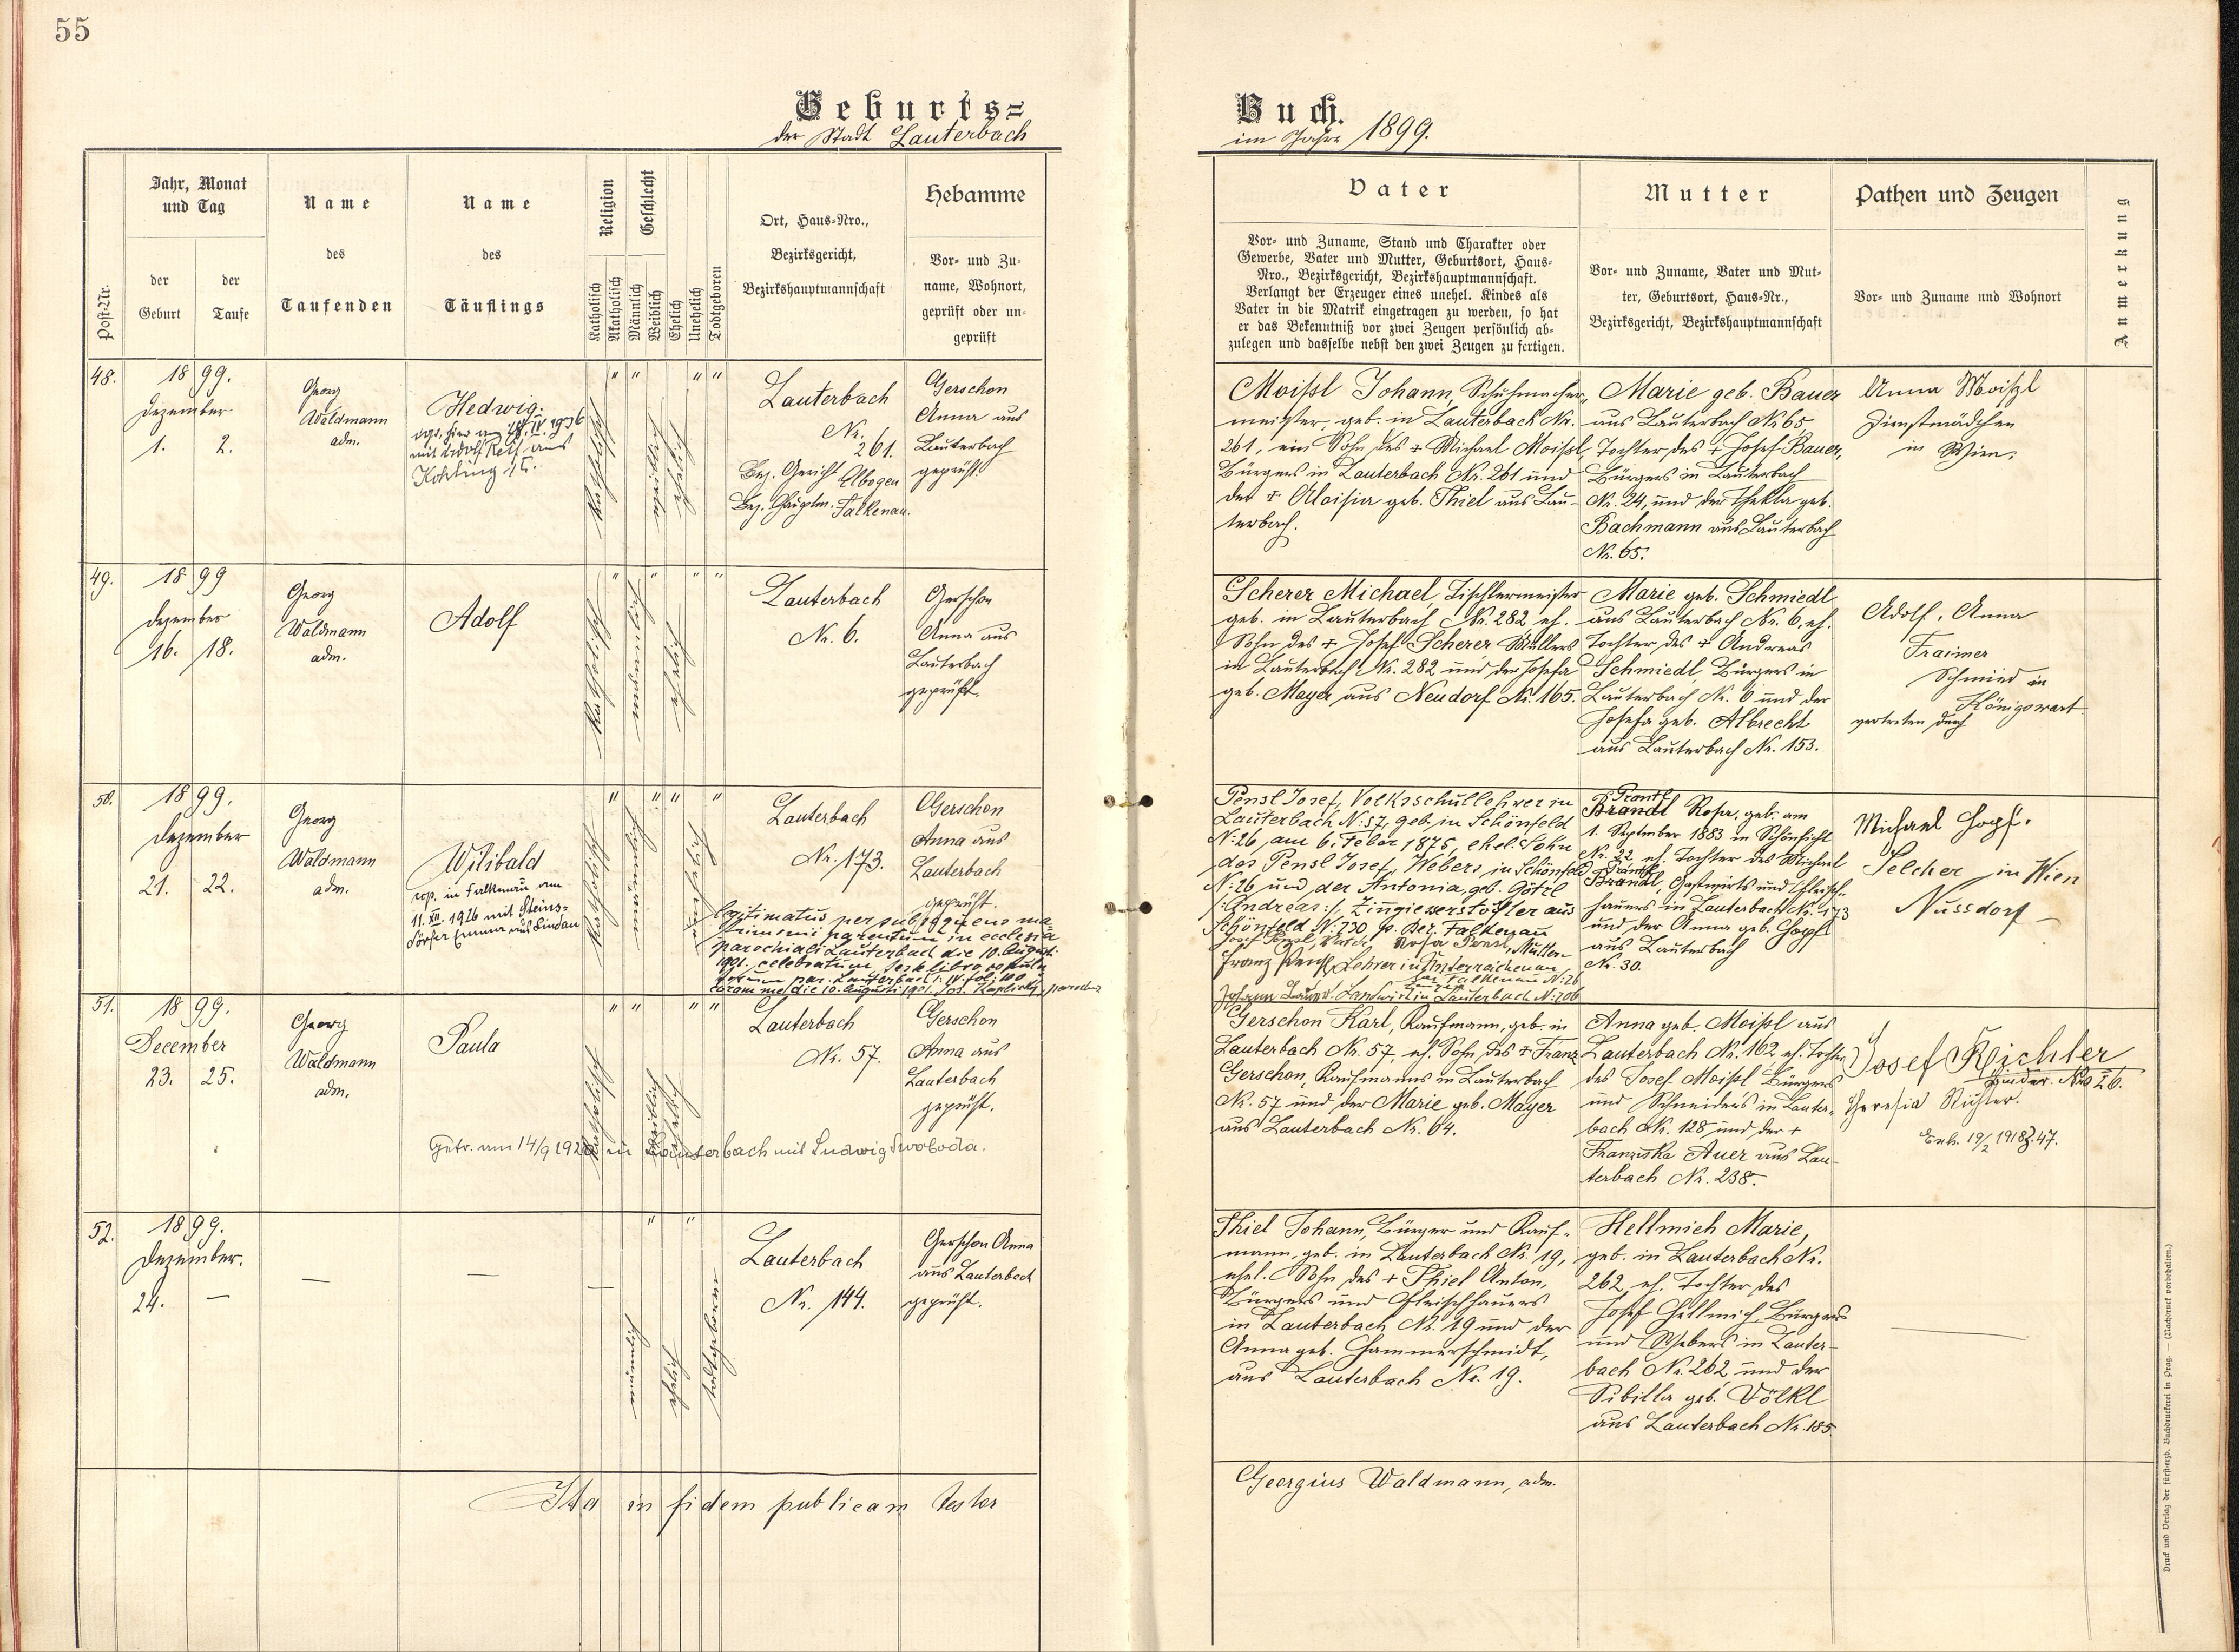 55
Geburts=
der Stadt Lauterbach
Buch.
im Jahre 1899.
Post-Nr.
Jahr, Monat
und Tag
der
Geburt
der
Taufe
Name
des
Taufenden
Name
des
Täuflings
Religion
Katholisch
Akatholisch
Geschlecht
Männlich
Weiblich
Ehelich
Unehelich
Todtgeboren
Ort, Haus-Nro.,
Bezirksgericht,
Bezirkshauptmannschaft
Hebamme
Vor- und Zu-
name, Wohnort,
geprüft oder un-
geprüft
Vater
Vor- und Zuname, Stand und Charakter oder
Gewerbe, Vater und Mutter, Geburtsort, Haus-
Nro., Bezirksgericht, Bezirkshauptmannschaft.
Verlangt der Erzeuger eines unehel. Kindes als
Vater in die Matrik eingetragen zu werden, so hat
er das Bekenntniß vor zwei Zeugen persönlich ab-
zulegen und dasselbe nebst den zwei Zeugen zu fertigen.
Mutter
Vor- und Zuname, Vater und Mut-
ter, Geburtsort, Haus-Nr.,
Bezirksgericht, Bezirkshauptmannschaft
Pathen und Zeugen
Vor- und Zuname und Wohnort
Anmerkung
48.
1899.
Dezember
1. 2.
Georg
Waldmann
adm.
Hedwig.
mit Adolf
katholisch
weiblich
ehelich
Lauterbach
Nr.
261.
Bez. Gericht Elbogen
Bez. Hauptm. Falkenau.
Gerschon
Anna aus
Lauterbach
geprüft.
Moißl Johann, Schuhmacher-
meister, geb. in Lauterbach Nr.
261, ein Sohn des + Michael Moißl,
Bürgers in Lauterbach Nr. 261 und
der + Aloisia geb. Thiel aus Lau-
terbach.
Marie geb. Bauer
aus Lauterbach Nr 65,
Tochter des + Josef Bauer,
Bürgers in Lauterbach
Nr. 24, und der Thekla geb.
Bachmann aus Lauterbach
Nr. 65.
Anna Moißl
Dienstmädchen
in Wien.
49.
1899
Dezember
16. 18.
Georg
Waldmann
adm.
Adolf
katholisch
männlich
ehelich
Lauterbach
Nr. 6.
Gerschon
Anna aus
Lauterbach
geprüft.
Scherer Michael, Tischlermeister
geb. in Lauterbach Nr. 282 eh.
Sohn des + Josef Scherer Müllers
in Lauterbach Nr. 282 und der Josefa
geb. Mayer aus Neudorf Nr. 165.
Marie geb. Schmiedl
aus Lauterbach Nr. 6, eh.
Tochter des + Andreas
Schmiedl, Bürgers in
Lauterbach Nr. 6 und der
Josefa geb. Albrecht
aus Lauterbach Nr. 153.
Adolf, Anna
Fraimer
Schmied in
Königswart
vertreten durch
50.
1899.
Dezember
21. 22.
Georg
Waldmann
adm.
Wilibald
cop. in Falkenau am
11. XII. 1926 mit Steins-
dörfer Emma aus Lindau
katholisch
männlich
unehelich
Lauterbach
Nr. 173.
Gerschon
Anna aus
Lauterbach
geprüft.
legitimatus per subsequens ma-
trimonii parentum in ecclesia
parochiali Lauterbach die 10. Augusti
1901. celebratum
par. Lauterbach
coram me die 10. Augusti 1901. parochus
Pensl Josef, Volksschullehrer in
Lauterbach N: 57, geb. in Schönfeld
N: 26 am 6. Feber 1875, ehel. Sohn
des Pensl Josef, Webers in Schönfeld
N: 26 und der Antonia, geb. Götzl
/: Andreas :/, Zinngiesserstochter aus
Schönfeld N: 230 Falkenau
Josef Pensl, Rosa Pensl, Mutter
Franz Pensl, Lehrer in Unterreichenau
Falkenau N: 26
Johann Bauer, Landwirt in Lauterbach N: 206
Prantl
Brandl Rosa, geb. am
1. September 1883 in Schönficht
Nr. 22 eh. Tochter des Michael
Prantl
Brandl, Gastwirts und Fleisch-
hauers in Lauterbach Nr. 173
und der Anna geb. Hopf
aus Lauterbach
Nr. 30.
Michael Hopf.
Selcher in Wien
Nussdorf
51.
1899.
December
23. 25.
Georg
Waldmann
adm.
Paula
katholisch
weiblich
ehelich
Getr. am 14/9 192 in Lauterbach mit Ludwig Swoboda.
Lauterbach
Nr. 57.
Gerschon
Anna aus
Lauterbach
geprüft.
Gerschon Karl, Kaufmann, geb. in
Lauterbach Nr. 57, eh. Sohn des + Franz
Gerschon, Kaufmanns in Lauterbach
Nr. 57 und der Marie geb. Mayer
aus Lauterbach Nr. 64.
Anna geb. Moißl aus
Lauterbach Nr. 162 eh. Tochter
des Josef Moißl Bürgers
und Schneiders in Lauter-
bach Nr. 128 und der +
Franziska Auer aus Lau-
terbach Nr. 238.
Josef Richter
Theresia Richter.
19/2 1918 Z. 47.
52.
1899.
Dezember.
24. —
—
—
—
männlich
ehelich
todtgeboren
Lauterbach
Nr. 144.
Gerschon Anna
aus Lauterbach
geprüft.
Thiel Johann, Bürger und Kauf-
mann, geb. in Lauterbach Nr. 19,
ehel. Sohn des + Thiel Anton,
Bürgers und Fleischhauers
in Lauterbach Nr. 19 und der
Anna geb. Hammerschmidt,
aus Lauterbach Nr. 19.
Hellmich Marie,
geb. in Lauterbach Nr.
262, eh. Tochter des
Josef Hellmich, Bürgers
und Webers in Lauter-
bach Nr. 262 und der
Sibilla geb. Völkl
aus Lauterbach Nr. 185.
Ita in fidem publicam testor
Georgius Waldmann, adm.
Druck und Verlag der fürsterzb. Buchdruckerei in Prag. — (Nachdruck vorbehalten.)